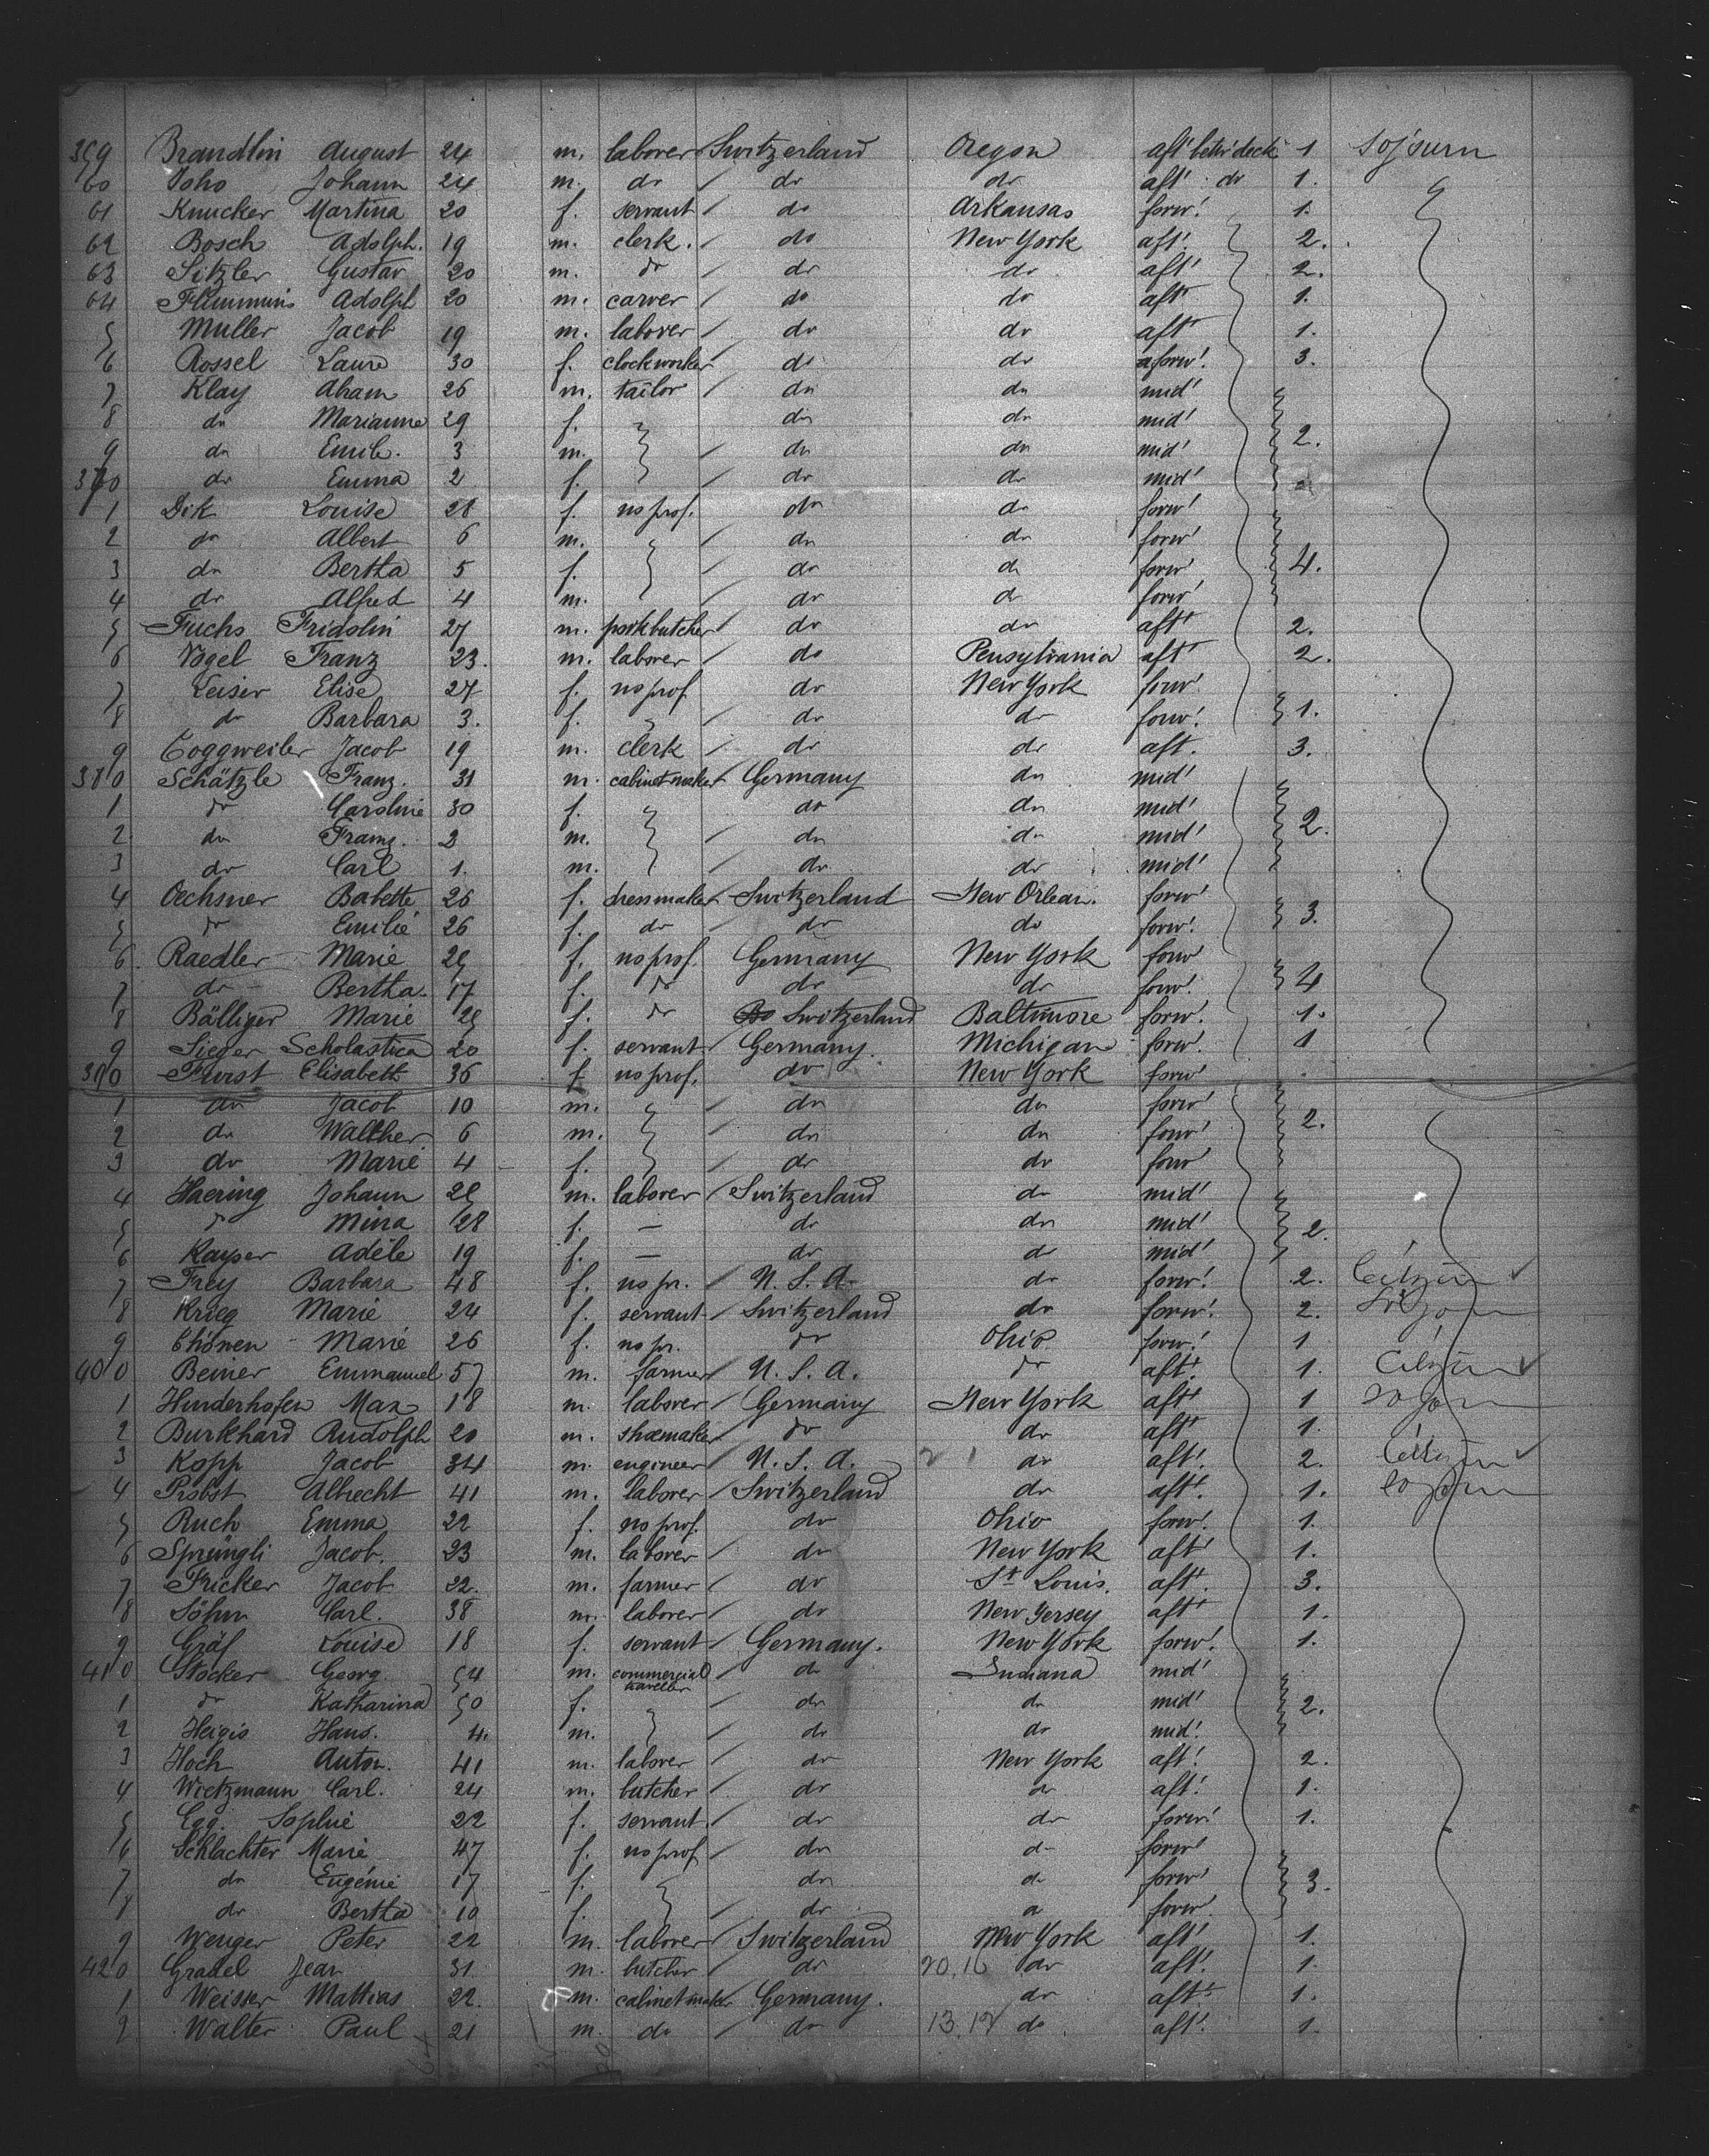 359 Brandlin August 24 m. laborer Switzerland Oregon aft' betw' deck 1 sojourn
60 Joho Johann 24 m. do do do aft' do 1.
61 Knucker Martina 20 f. servant do Arkansas forw! 1.
62 Bosch Adolph. 19 m. clerk. do New York aft! 2.
63 Sitzler Gustav 20 m. do do do aft! 2.
64 Adolph 20 m. carver do do aft' 1.
5 Muller Jacob 19 m. laborer do do aft' 1.
6 Rossel Laure 30 f. clockworker do do forw! 3.
7 Klay Aham 26 m. tailor do do mid'
8 do Marianne 29 f. do do mid'
9 do Emile. 3 m. do do mid' 2.
370 do Emma 2 f. do do mid'
1 Dik Louise 28 f. no prof. do do forw'
2 do Albert 6 m. do do forw'
3 do Bertha 5 f. do do forw' 4.
4 do Alfred 4 m. do do forw'
5 Fuchs Fridolin 27 m. porkbutcher do do aft' 2.
6 Vogel Franz 23. m. laborer do Pensylvania aft' 2.
7 Keiser Elise 27 f. no prof. do New York forw'
8 do Barbara 3. f. do do forw! 1.
9 Toggweiler Jacob 19 m. clerk do do aft. 3.
380 Schätzle Franz. 31 m. cabinetmaker Germany do mid'
1 do Caroline 30 f. do do mid'
2 do Franz. 2 m. do do mid' 2.
3 do Carl 1. m. do do mid'
4 Oechsner Babette 26 f. dressmaker Switzerland New Orlean. forw'
5 do Emilie 26 f. do do do forw! 3.
6 Raedler Marie 25 f. no prof. Germany New York forw'
7 do Bertha. 17 f. do do do forw! 4
8 Bälliger Marie 25 f. do Switzerland Baltimore forw. 1.
9 Sieger Scholastica 20 f. servant Germany. Michigan forw. 1
390 Furst Elisabeth 36 f. no prof. do New York forw'
1 do Jacob 10 m. do do forw'
2 do Walther 6 m. do do forw' 2.
3 do Marie 4 f. do do forw'
4 Haering Johann 25 m. laborer Switzerland do mid'
5 do Mina 28 f. — do do mid' 2.
6 Kayser Adèle 19 f. — do do mid'
7 Frey Barbara 48 f. no pr. U. S. A. do forw! 2. Citizen
8 Krieg Marie 24 f. servant Switzerland do forw! 2. Sojourn
9 Thönen Marie 26 f. no pr. do Ohio forw! 1
400 Beiner Emmanuel 57 m. farmer U. S. A. do aft! 1. Citizen
1 Hunderhofen Max 18 m. laborer Germany New York aft' 1 sojourn
2 Burkhard Rudolph 20 m. shoemaker do do aft' 1.
3 Kopp Jacob 34 m. engineer U. S. A. do aft! 2. Citizen
4 Probst Albrecht 41 m. laborer Switzerland do aft! 1. sojourn
5 Ruch Emma 22 f. no prof. do Ohio forw! 1.
6 Sprüngli Jacob. 23 m. laborer do New York aft' 1.
7 Fricker Jacob 22. m. farmer do St Louis. aft! 3.
8 Söhm Carl. 38 m. laborer do New Yersey aft' 1.
9 Gräf Louise 18 f. servant Germany. New York forw! 1.
410 Stocker Georg. 54 m. commercial traveller do Indiana mid'
1 do Katharina 50 f. do do mid' 2.
2 Heigis Hans. 4. m. do do mid!
3 Hoch Anton. 41 m. laborer do New York aft! 2.
4 Wietzmann Carl. 24 m. butcher do do aft! 1.
5 Egg. Sophie 22 f. servant do do forw! 1.
6 Schlachter Marie 47 f. no prof do do forw'
7 do Eugénie 17 f. do do forw' 3.
8 do Bertha 10 f. do do forw'
9 Wenger Peter 22 m. laborer Switzerland New York aft' 1.
420 Gradel Jean 31 m. butcher do 20.16 do aft! 1.
1 Weisser Mathias 22. m. cabinetmaker Germany. do aft! 1.
2 Walter Paul 21 m. do do 13.12 do aft! 1.